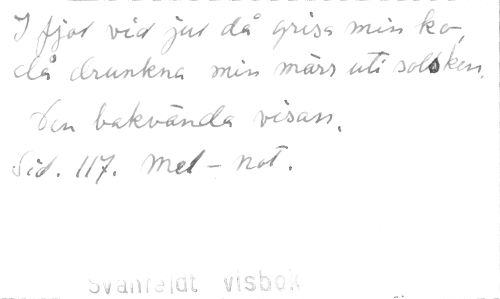 I fjol vid jul då grisa min ko,
då drunkna min märr uti solsken.
Den bakvända visan.
Sid. 117. Mel-not.
Svanfeldt visbok